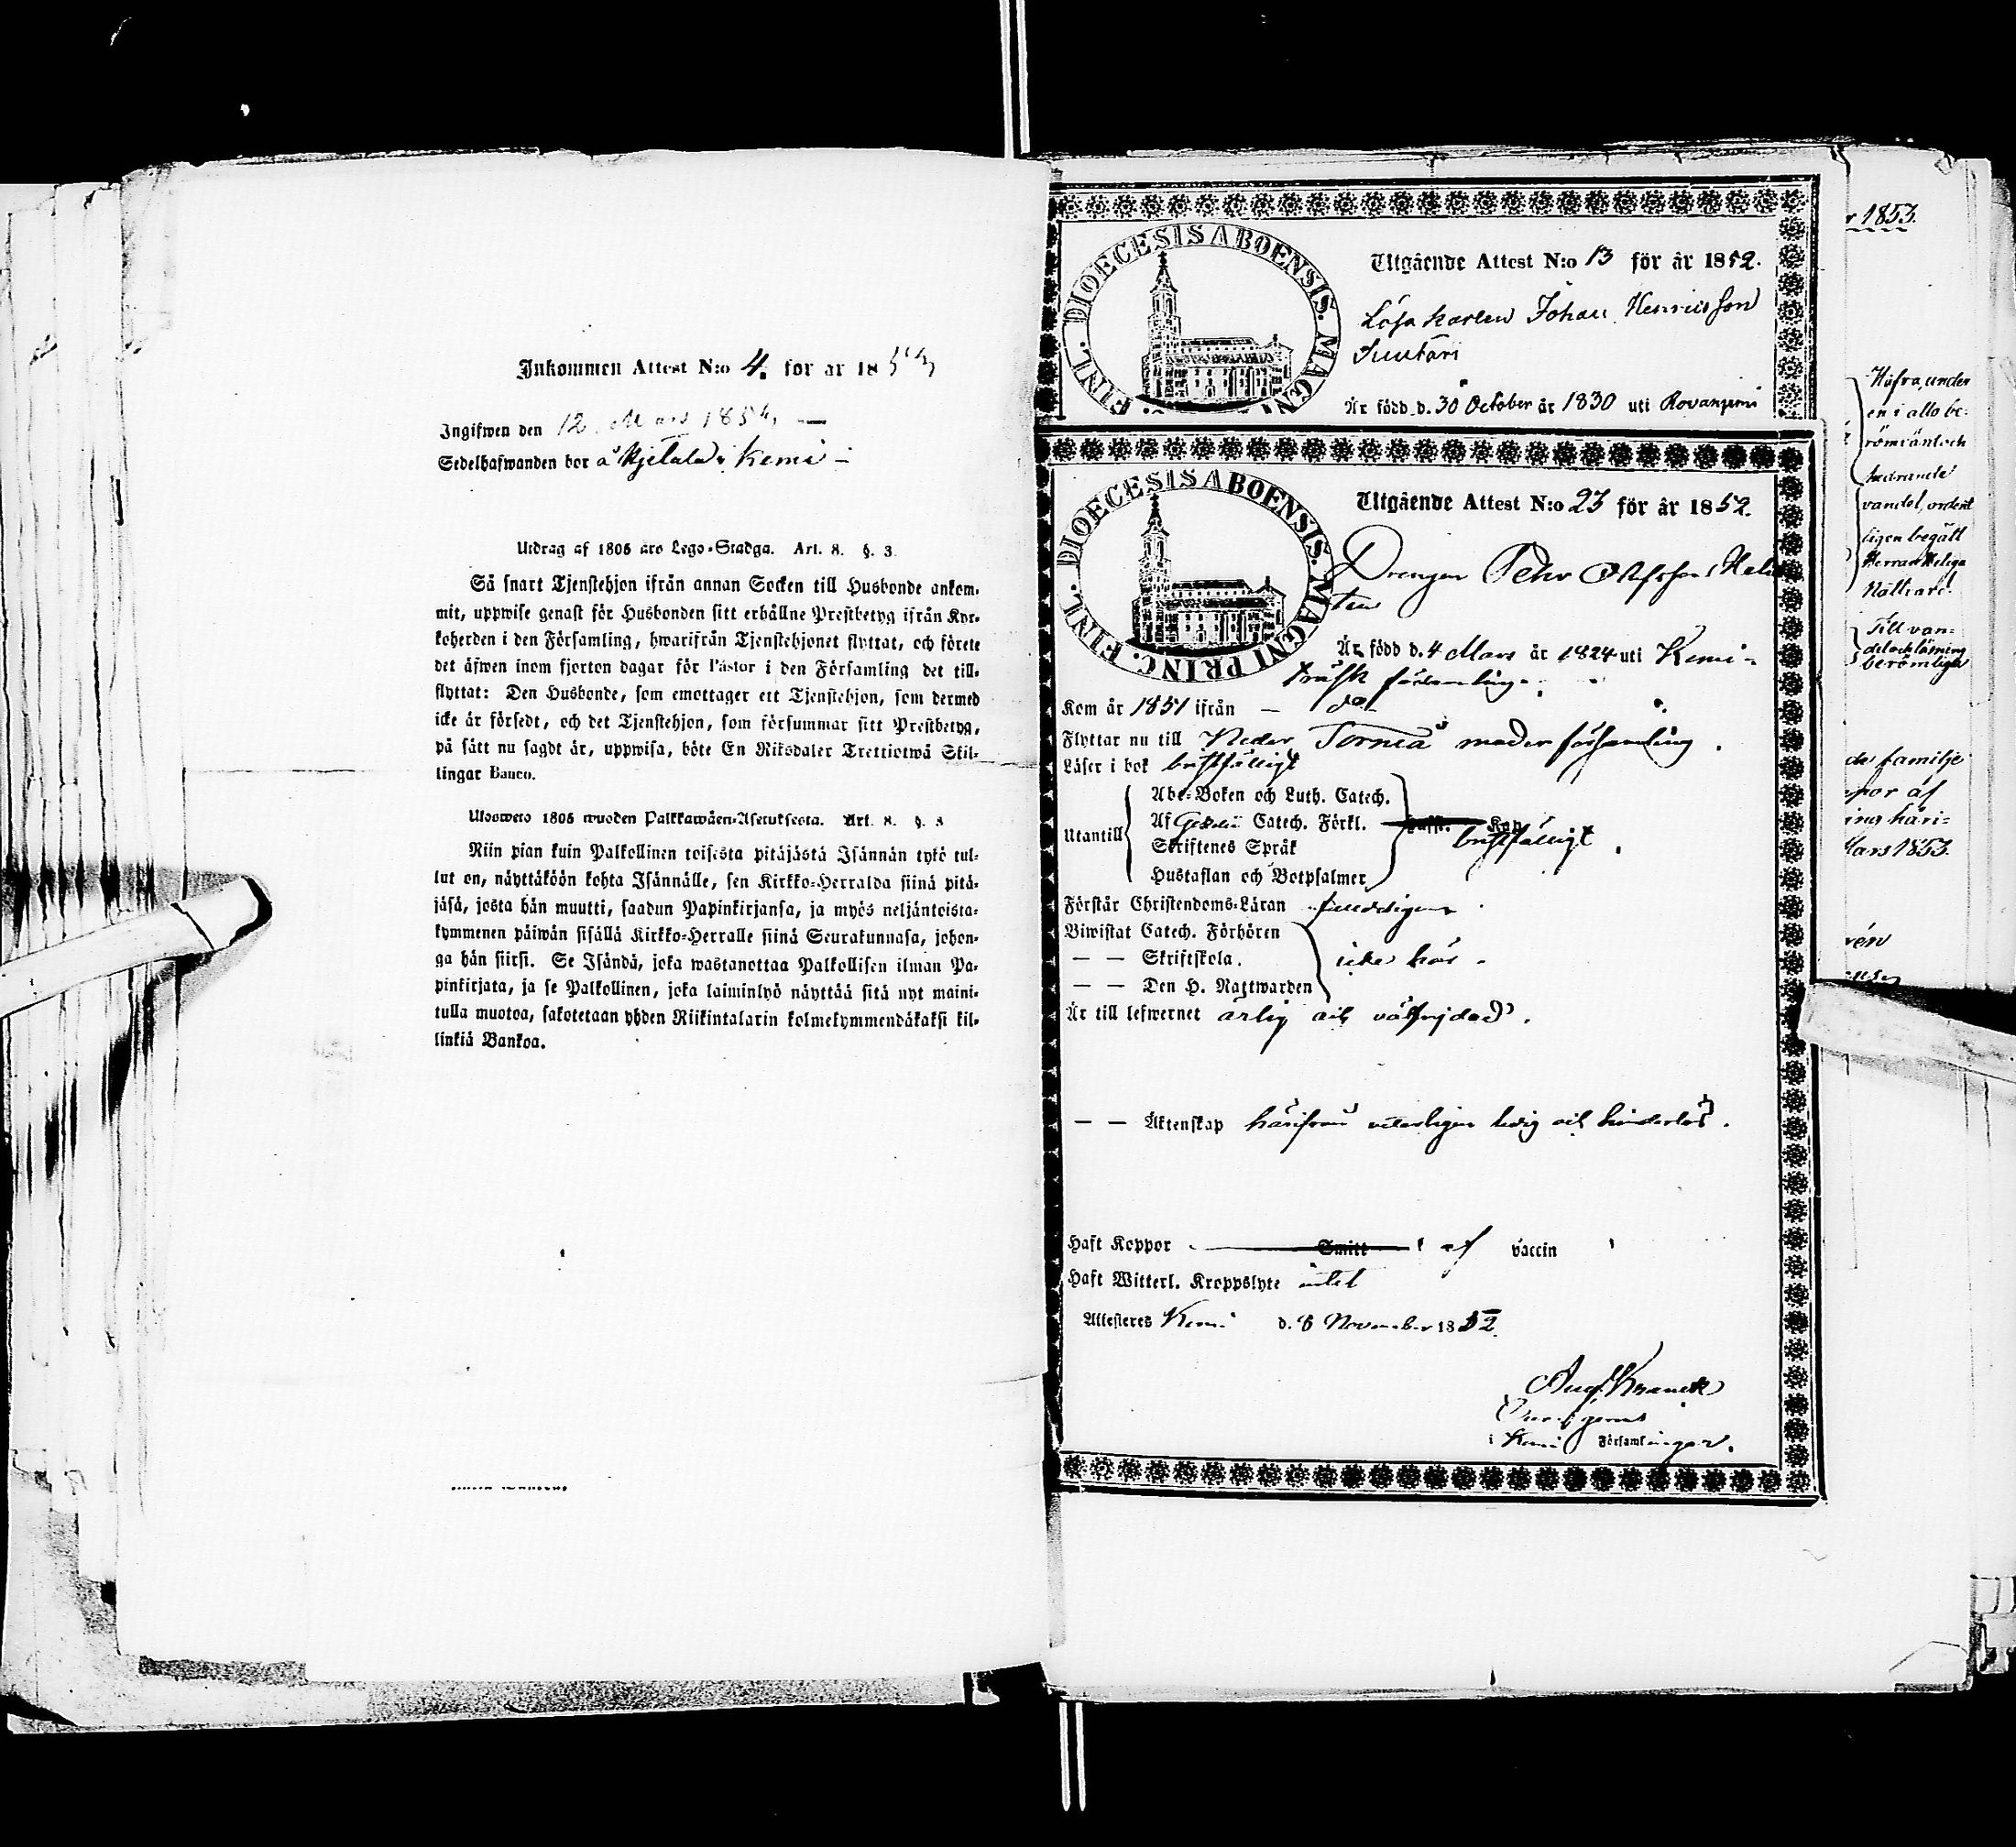 Inkommen Attest N:o 4. för år 18
Ingifwen den 12. Mars 1854,
Sedelhafwanden bor å i Kemi
Utdrag af 1805 års Lego-Stadga. Art. 8. §. 3.
Så snart Tjenstehjon ifrån annan Socken till Husbonde ankom-
mit, uppwise genast för Husbonden sitt erhållne Prestbetyg ifrån Kyr-
koherden i den Församling, hwarifrån Tjenstehjonet flyttat, och förete
det äfwen inom fjorton dagar för Pastor i den Församling det till-
flyttat: Den Husbonde, som emottager ett Tjenstehjon, som dermed
icke är försedt, och det Tjenstehjon, som försummar sitt Prestbetyg,
på sätt nu sagdt är, uppwisa, böte En Riksdaler Trettiotwå Skil-
lingar Banco.
Ulosweto 1805 wuoden Palkkawäen-Asetuksesta. Art. 8. §. 3
Niin pian kuin Palkollinen toisesta pitäjästä Isännän tykö tul-
lut on, näyttäköön kohta Isännälle, sen Kirkko-Herralda siinä pitä-
jäsä, josta hän muutti, saadun Papinkirjansa, ja myös neljäntoista-
kymmenen päiwän sisällä Kirkko-Herralle siinä Seurakunnasa, johon-
ga hän siirsi. Se Isändä, joka wastanottaa Palkollisen ilman Pa-
pinkirjata, ja se Palkollinen, joka laiminlyö näyttää sitä nyt maini-
tulla muotoa, sakotetaan yhden Riikintalarin kolmekymmendäkaksi kil-
linkiä Bankoa.
DIOECESIS ABOENSIS. MAGNI FINL.
Utgående Attest N:o 13 för år 1852.
Lösa karlen Johan Henriksson
Är född d. 30 October år 1830 uti Rovaniemi
DIOECESIS ABOENSIS. MAGNI PRINC. FINL.
Utgående Attest N:o 23 för år 1852.
Drengen Pehr Olofsson
Är född d. 4 Mars år 1824 uti Kemi-
träsk församling.
Kom år 1851 ifrån — do
Flyttar nu till Neder Torneå moder församling.
Läser i bok bristfälligt
Utantill
Abc-Boken och Luth. Catech.
Af Catech. Förkl.
Skriftenes Språk
Hustaflan och Botpsalmer
bristfälligt.
Förstår Christendoms-Läran
Biwistat Catech. Förhören
— — Skriftskola.
— — Den H. Nattwarden
icke här.
Är till lefwernet ärlig och välfrejdad.
— — Äktenskap härifrån veterligen ledig och hinderlös.
Haft Koppor Smitt af vaccin
Haft Witterl. Kroppslyte intet
Attesteres Kemi d. 8 November 1852.
Aug. Kranck
i Kemi Församlingar.
1853.
Häfra, under
en i allo be-
vandel, ordent
ligen begått
Herrans Heliga
Nattvard.
Till van-
del och läsning
berömliga
familje
af
ing häri-
Mars 1853.